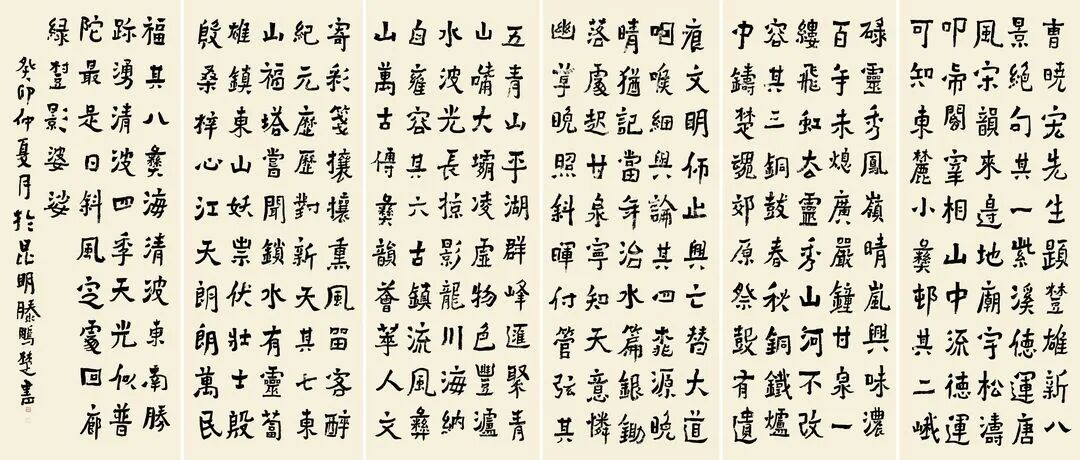 曹曉宏先生題楚雄新八
景絕句其一紫溪徳運唐
風宋韻來邊地廟宇松濤
叩帝閽宰相山中流徳運
可知東麓小彝邨其二峨
碌靈秀鳳嶺晴嵐興味濃
百手未熄廣嚴鐘甘泉一
縷飛虹太靈秀山河不改
容其三銅鼓春秋銅鐵爐
中鑄楚魂郊原祭鼓有遺
痕文明佈止興亡替大道
咽喉細與論其四桃源晚
晴猶記當年治水篇銀鋤
落處起甘泉寧知天意憐
幽草晚照斜暉付管弦其
五青山平湖群峰匯聚青
山嘴大壩凌虛物色豐瀘
水波光長掠影龍川海納
自雍容其六古鎮流風彝
山萬古傳彝韻薈萃人文
寄彩箋攘攘熏風留客醉
紀元歷歷對新天其七東
山福塔嘗聞鎖水有靈蔔
雄鎮東山妖祟伏壯士殷
殷桑梓心江天朗朗萬民
福其八彝海清波東南勝
跡湧清波四季天光似普
陀最是日斜風定處回廊
綠樹影婆娑
癸卯仲夏月於昆明滕鵬楚書